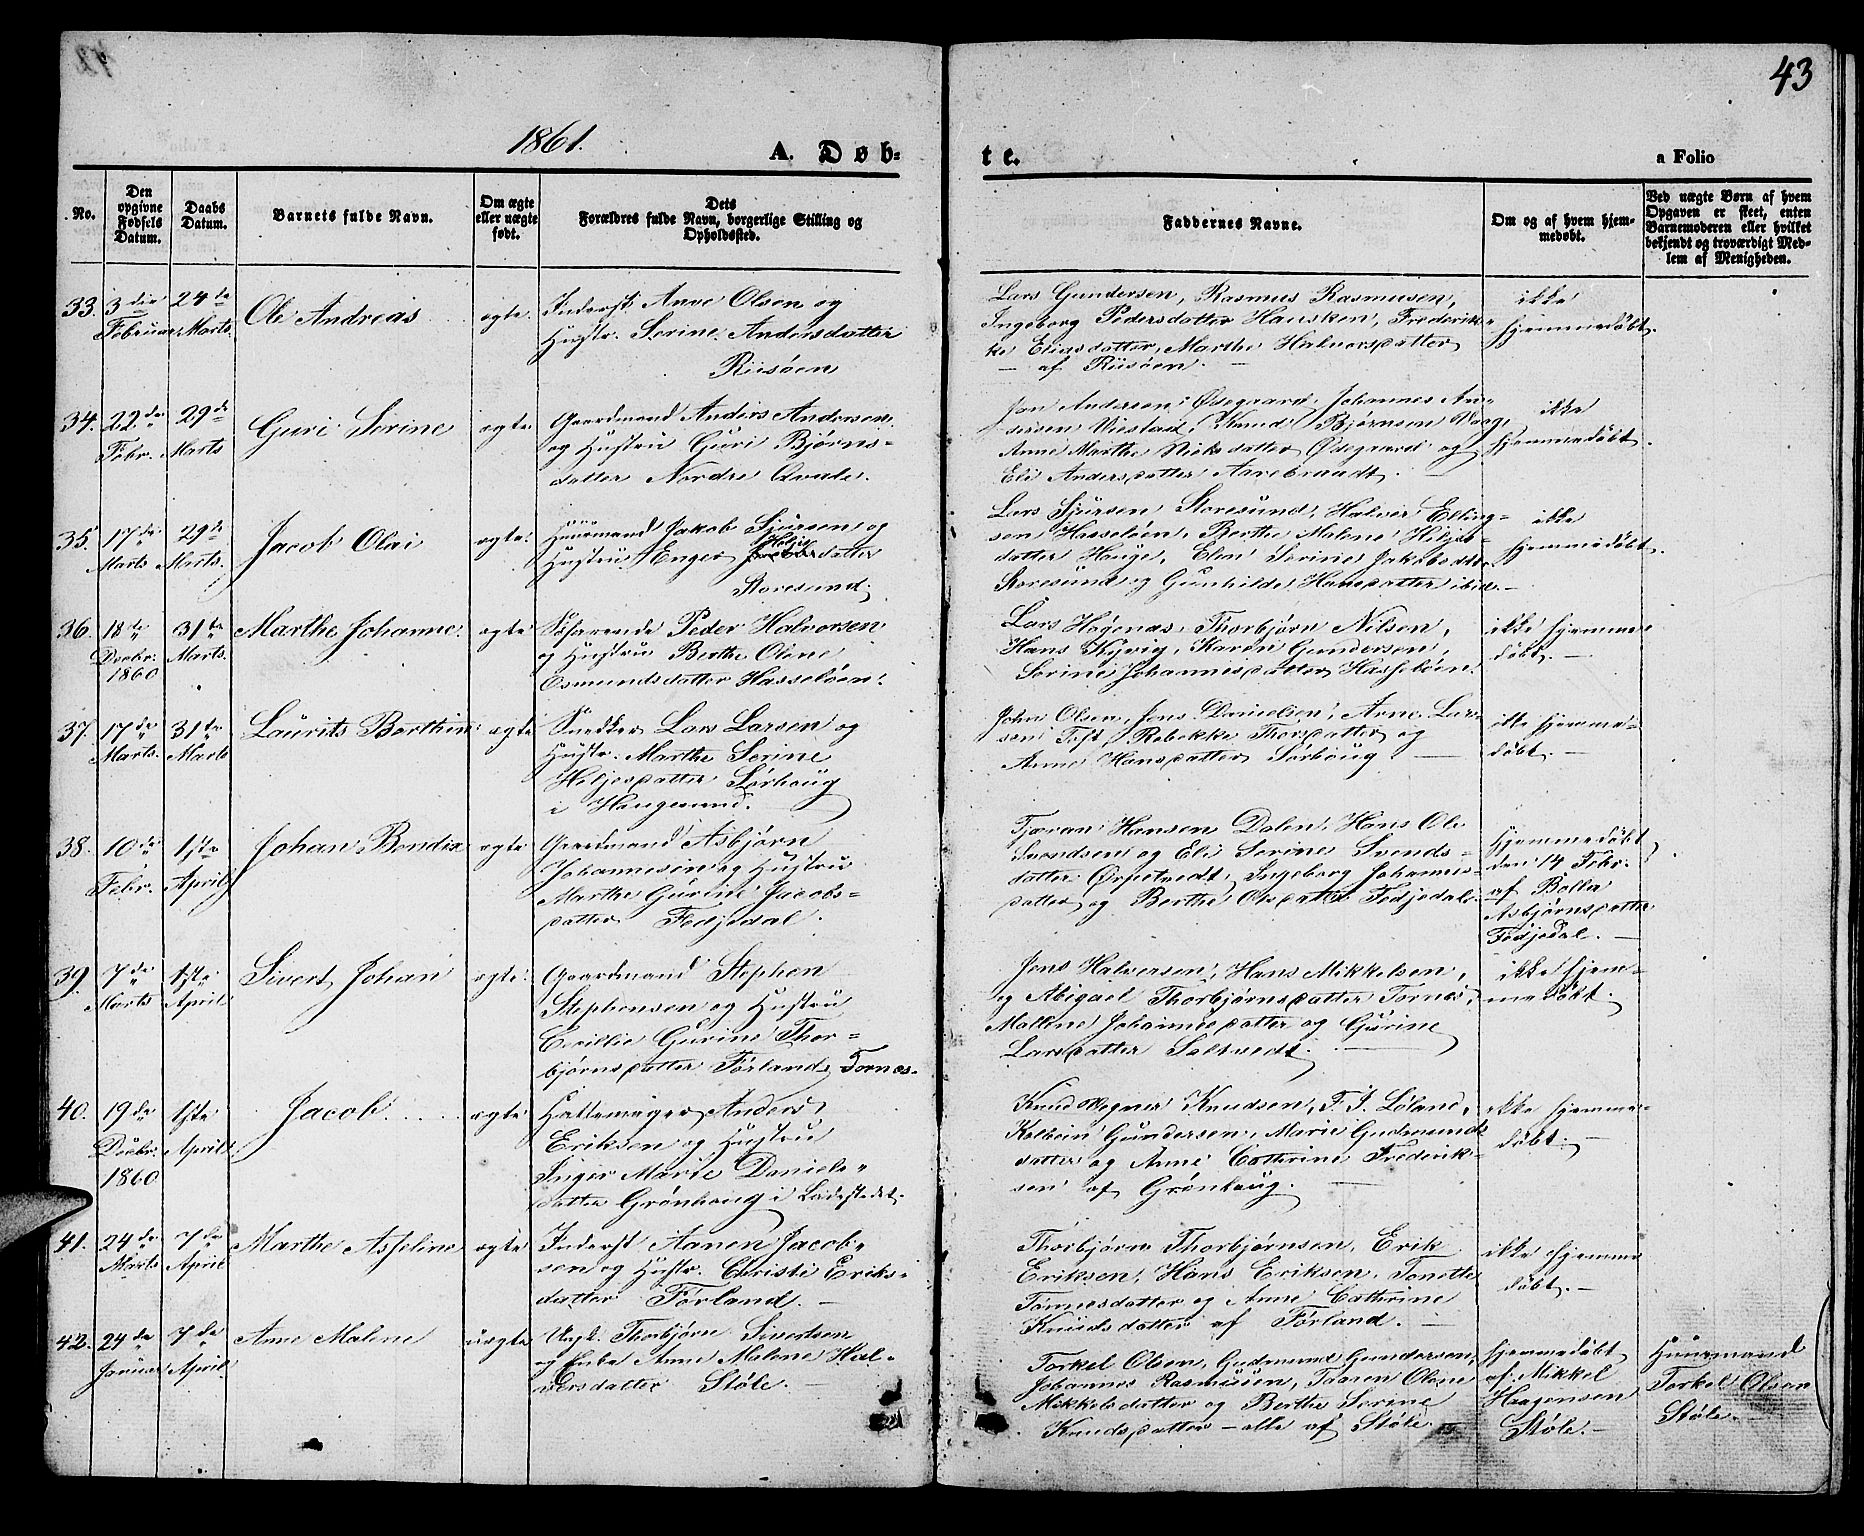 43
1861.
A. Døb-
te.
a Folio
No.
Den opgivne Fødsels Datum.
Daabs Datum.
Barnets fulde Navn.
Om ægte eller uægte født.
Dets Forældres fulde Navn, borgerlige Stilling og Opholdssted.
Faddernes Navne.
Om og af hvem hjemmedøbt.
Ved uægte Børn af hvem Opgaven er skeet, enten Barnemoderen eller hvilket bekjendt og troværdigt Medlem af Menigheden.
33. 3die Februar 24de Marts. Ole Andreas ægte.
Inderst Arve Olsen og
Hustr. Serine Andersdatter
Riisøen
Lars Gundersen, Rasmus Rasmusen,
Ingeborg Pedersdatter Hausken, Frederik-
ke Eliasdatter, Marthe Halvorsdatter
– af Riisøen. –
ikke
hjemmedøbt.
34. 22de Febr. 29de Marts Guri Serine ægte
Gaardmand Anders Andersen
og Hustru Guri Bjørns-
datter Nordre Qvale.
Jon Andersen Ødegaard, Johannes An-
dersen Viestad, Knud Bjørnsen Vaag,
Anne Marthe Nielsdatter Ødegaard og
Eli Andersdatter Aarebraadt.
ikke
hjemmedøbt.
35. 17de Marts 29de Marts. Jacob Olai ægte.
Huusmand Jakob Sjursen og
Hustru Enger Hiljesdatter
Storesund
Lars Sjursen Storesund, Halvor Elling-
sen Hasseløen, Berthe Malene Hiljes-
datter Hauge, Elen Serine Jakobsdtr
Storesund og Gunhilde Hansdatter ibid. –
ikke
hjemmedøbt.
36. 18de Decbr. 1860 31te Marts. Marthe Johanne. ægte
Søfarende Peder Halvorsen
og Hustru Berthe Olene
Osmundsdatter Hasseløen.
Lars Høgenæs, Thorbjørn Nilsen,
Hans Kyvig, Karen Gundersen,
Serine Johannesdatter Hasseløen.
ikke hjemme-
døbt. –
37. 17de Marts. 31te Marts Laurits Berthin ægte
Snedker Lars Larsen og
Hustr. Marthe Serine
Hiljesdatter Sørhoug
i Haugesund.
John Olsen, Jens Danielsen, Arne Lar-
sen Toft, Rebekke Thorsdatter og
Anne Hansdatter Sørhoug –
ikke hjemme-
døbt. –
38. 10de Febr. 1ste April Johan Bendix ægte
Gaardmand Asbjørn
Johannesen og Hustru
Marthe Gurine Jacobs-
datter Fedjedal.
Tjeran Hansen Dalen, Hans Ole
Svendsen og Eli Serine Svends-
datter Ørpetvedt, Ingeborg Johannes-
datter og Berthe Olsdatter Fedjedal.
Hjemmedøbt
den 14 Febr.
af Bolla
Asbjørnsdatter
Fedjedal. –
39. 7de Marts 1ste April Sivert Johan ægte
Gaardmand Stephen
Stephensen og Hustru
Cecillie Gurine Thor-
bjørnsdatter Førland, Tornæs.
Jens Halversen, Hans Mikkelsen,
og Abigael Thorbjørnsdatter Tornes,
Mallene Johannesdatter og Gurine
Larsdatter Saltvedt. –
ikke hjem-
medøbt.
40. 19de Decbr. 1860 1ste April Jacob ægte
Hattemager Anders
Eriksen og Hustru
Inger Marie Daniels-
datter Grønhaug i Ladestedet.
Knud Wegner Knudsen, F. J. Løland,
Kolbein Gundersen, Marie Gudmunds
datter og Anne Cathrine Frederik-
sen af Grønhaug.
ikke hjemme-
døbt. –
41. 24de Marts 7de April Marthe Asseline ægte
Inderst Aanen Jacob-
sen og Hustr. Christi Eriks-
datter Førland. –
Thorbjørn Thorbjørnsen, Erik
Eriksen, Hans Eriksen, Tonette
Tønnesdatter og Anne Cathrine
Knudsdatter af Førland. –
ikke hjemme
døbt. –
42. 24de Januar 7de April. Anne Malene uægte
Ungk. Thorbjørn Sivertsen
og Enke Anne Malene Hal-
versdatter Støle.
Torkel Olsen, Gudmund Gundersen,
Johannes Rasmusen, Taaren Olene
Mikkelsdatter og Berthe Serine
Knudsdatter – alle af Støle.
hjemmedøbt
af Mikkel
Haagensen
Støle. –
Huusmand
Torkel Olsen
Støle. –